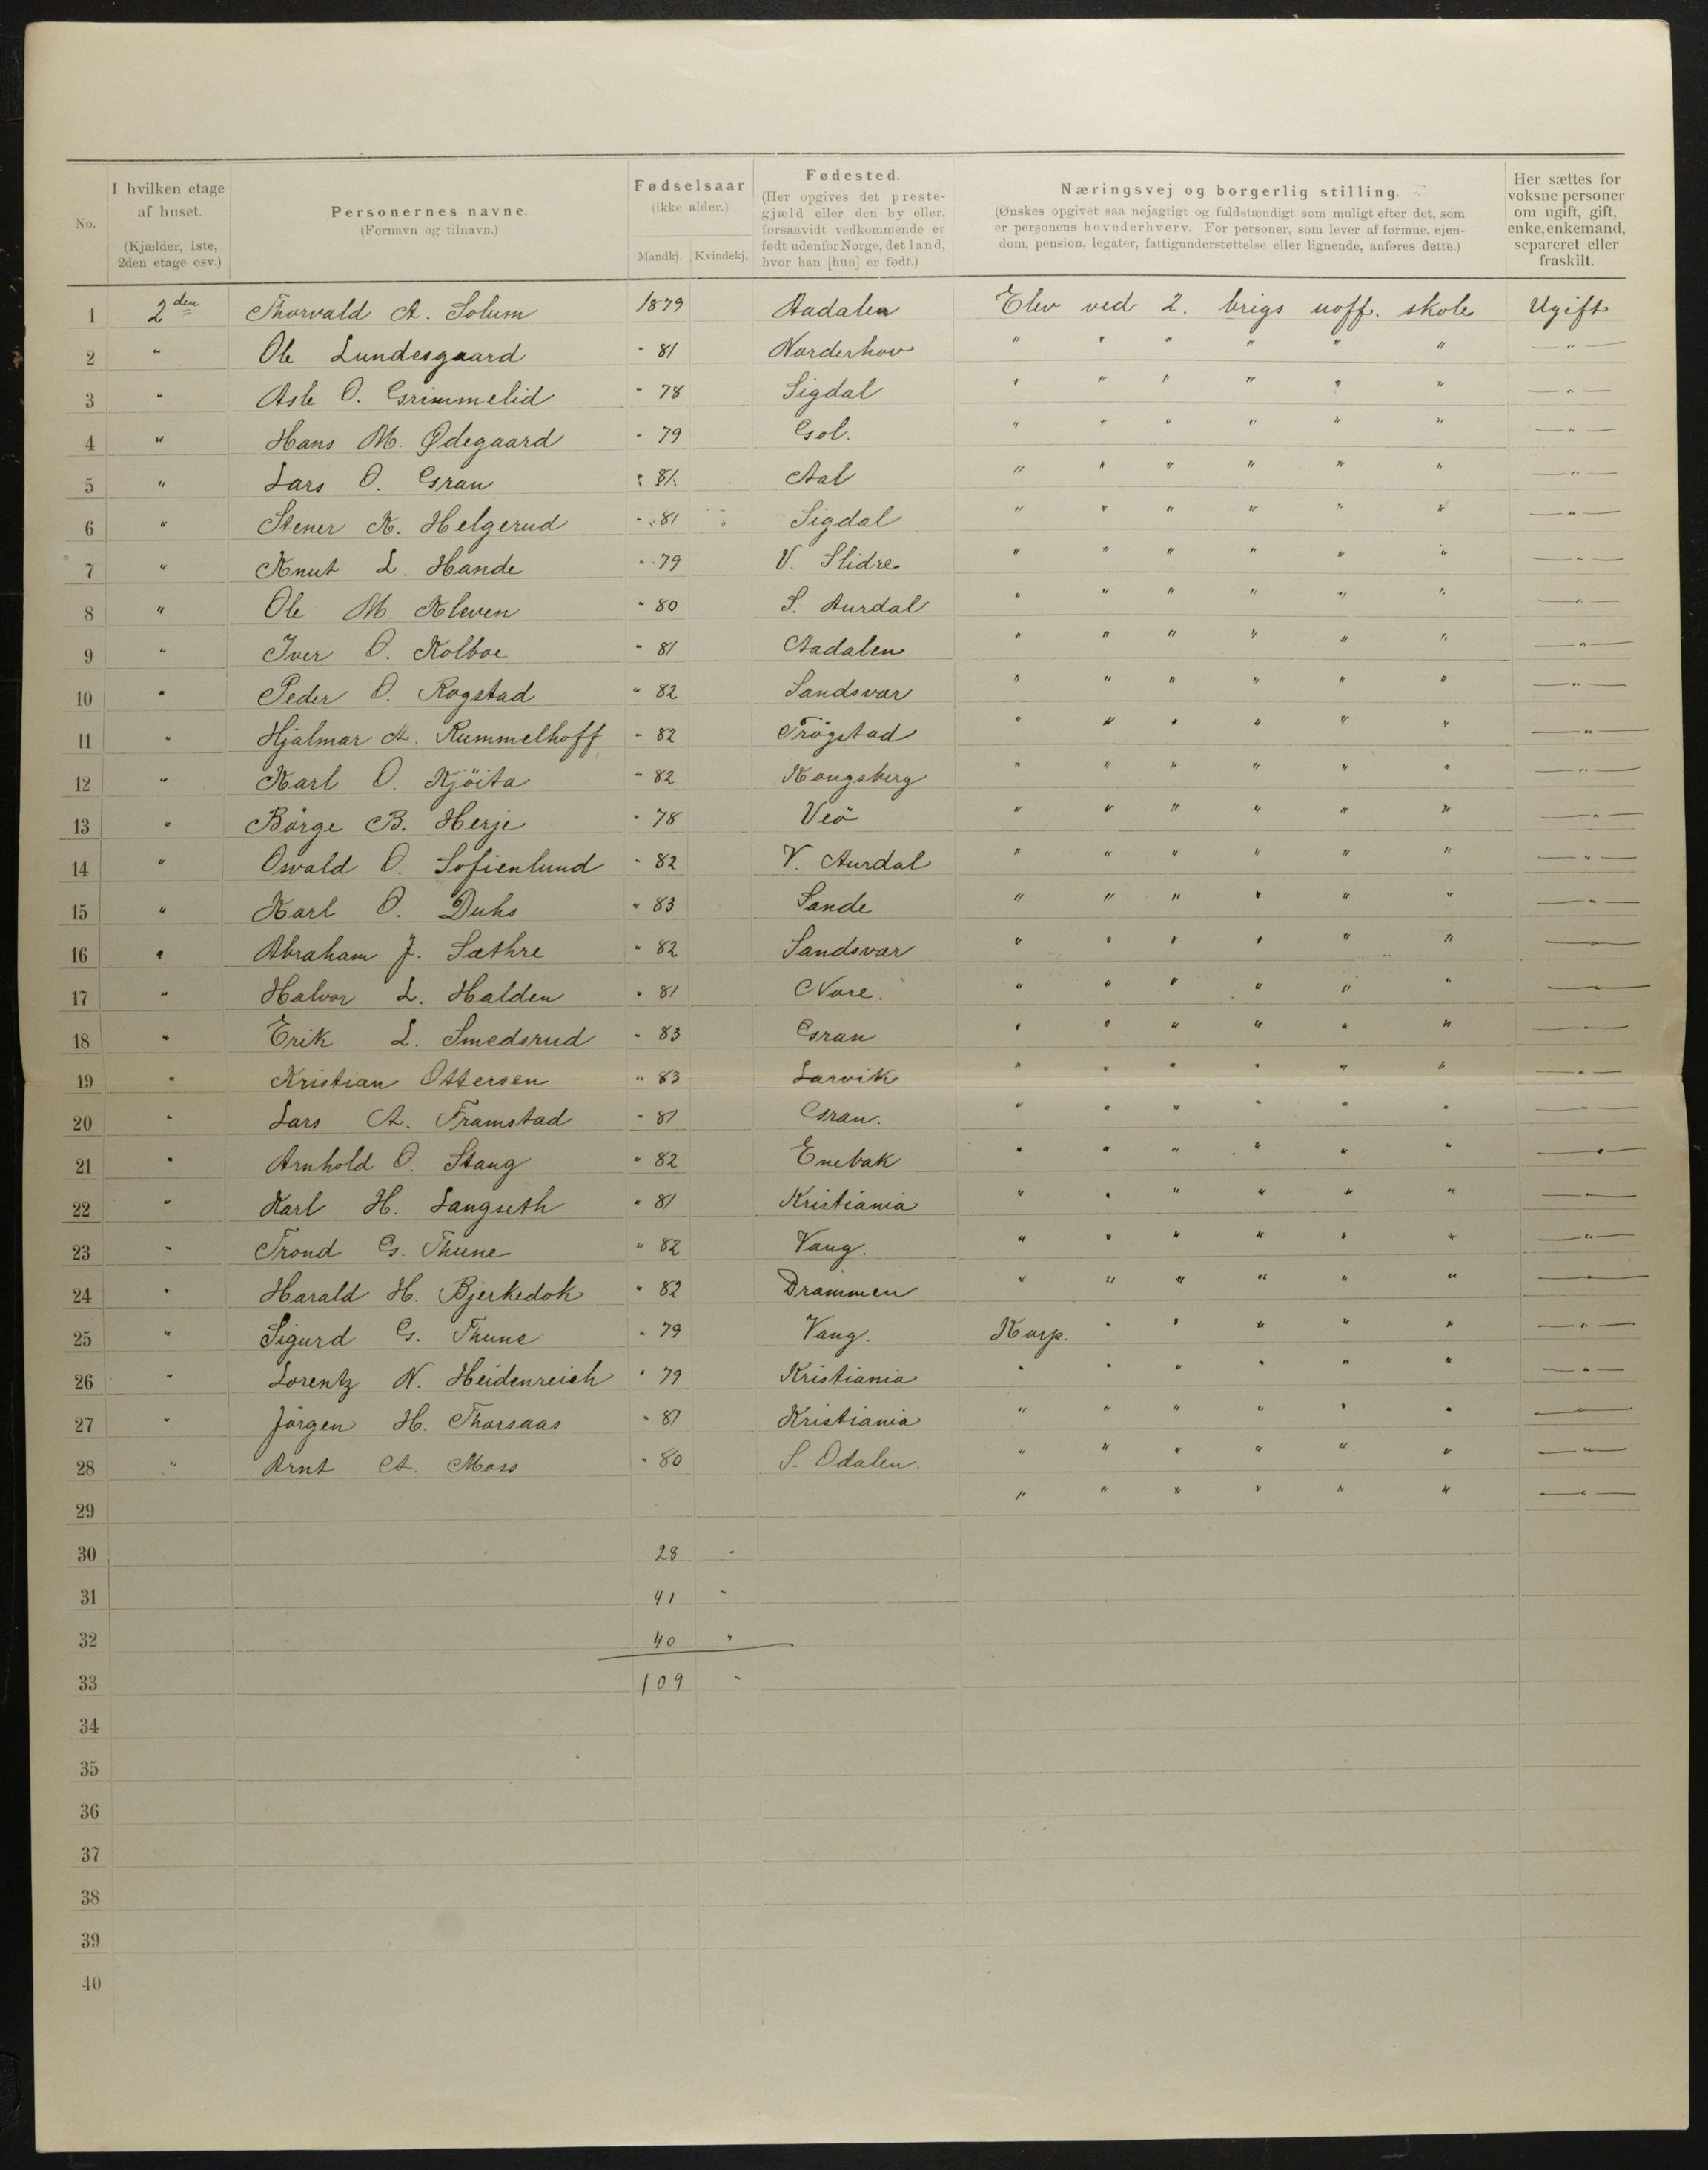 No.
I hvilken etage af huset. (Kjælder, 1ste, 2den etage osv.)
Personernes navne. (Fornavn og tilnavn.)
Fødselsaar (ikke alder.) Mandkj. Kvindekj.
Fødested. (Her opgives det prestegjæld eller den by eller, forsaavidt vedkommende er født udenfor Norge, det land, hvor han [hun] er født.)
Næringsvej og borgerlig stilling. (Ønskes opgivet saa nøjagtigt og fuldstændigt som muligt efter det, som er personens hovederhverv. For personer, som lever af formue, ejendom, pension, legater, fattigunderstøttelse eller lignende, anføres dette.)
Her sættes for voksne personer om ugift, gift, enke, enkemand, separeret eller fraskilt.
1 2den Thorvald A. Solum 1879 Aadalen Elev ved 2. brigs uoff. skole Ugift
2 " Ole Lundesgaard " 81 Norderhov " " " " " " — " —
3 " Asle O. Grimmelid " 78 Sigdal " " " " " " — " —
4 " Hans M. Ødegaard " 79 Gol. " " " " " " — " —
5 " Lars O. Gran " 81. Aal " " " " " " — " —
6 " Stener K. Helgerud " 81 Sigdal " " " " " " — " —
7 " Knut L. Hande " 79 V. Slidre " " " " " " — " —
8 " Ole M. Kleven " 80 S. Aurdal " " " " " " — " —
9 " Iver O. Kolboe " 81 Aadalen " " " " " " — " —
10 " Peder O. Rogstad " 82 Sandsvar " " " " " " — " —
11 " Hjalmar A. Rummelhoff " 82 Trögstad " " " " " " — " —
12 " Karl O. Kjöita " 82 Kongsberg " " " " " " — " —
13 " Börge B. Herje " 78 Veö " " " " " " — " —
14 " Osvald O. Sofienlund " 82 V. Aurdal " " " " " " — " —
15 " Karl O. Duhs " 83 Sande " " " " " " — " —
16 " Abraham J. Sæthre " 82 Sandsvar " " " " " " — " —
17 " Halvor L. Halden " 81 Nore. " " " " " " — " —
18 " Erik L. Smedsrud " 83 Gran " " " " " " — " —
19 " Kristian Ottersen " 83 Larvik " " " " " " — " —
20 " Lars A. Framstad " 81 Gran. " " " " " " — " —
21 " Arnhold O. Stang " 82 Enebak " " " " " " — " —
22 " Karl H. Langseth " 81 Kristiania " " " " " " — " —
23 " Trond G. Thune " 82 Vang. " " " " " " — " —
24 " Harald H. Bjerkedok " 82 Drammen " " " " " " — " —
25 " Sigurd G. Thune " 79 Vang. Korp. " " " " " — " —
26 " Lorentz N. Heidenreich " 79 Kristiania " " " " " " — " —
27 " Jörgen H. Thorsaas " 81 Kristiania " " " " " " — " —
28 " Arnt A. Moss " 80 S. Odalen. " " " " " " — " —
29 " " " " " " — " —
30 28 "
31 41 "
32 40 "
33 109 "
34
35
36
37
38
39
40